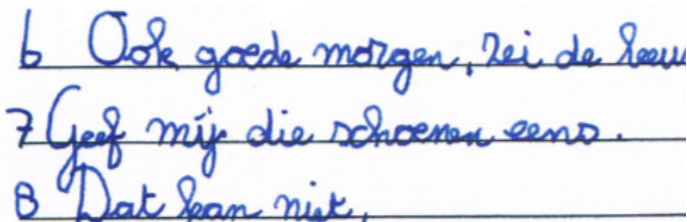 6 Ook goede morgen, zei de leeuw
7 Geef mij die schoenen eens.
8 Dat kan niet,